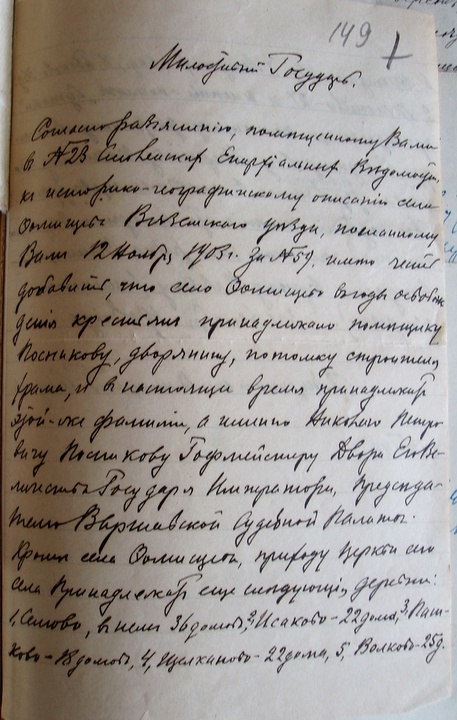 149
Милостивый Государь.
Согласно разъяснению, помещенному Вами
в №23 Смоленских Епархіальныхъ Ведомостей,
къ историко-географическому описанію села
Вяземского уезда, посланному
Вамъ 12 Ноября 1903 г. за №59, имею честь
добавить, что село въ годы освобож
денія крестьянъ принадлежало помещику
Посникову, дворянину, потомку строителя
храма, и в настоящее время принадлежитъ
этой-же фамиліи, а именно Петро
вичу Посникову Гофмейстеру Двора Его Ве-
личества Государя Императора, председа-
телю Варшавской Судебной Палаты.
Кроме села приходу церкви сего
села принадлежатъ еще следующія деревни:
1, въ ней 36 домовъ, 2, Исаково-22 дома, 3, Паш-
ково-18 домовъ, 4, Щелканово-22 дома, 5, Волково-25 д.